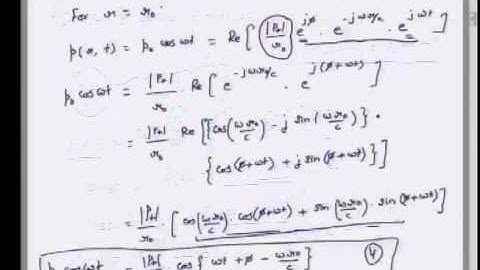 for r = r₀
p(r, t) = p₀ cos ωt = Re [ |P₊|/r₀ e^{jφ} · e^{-jωr/c} · e^{jωt} ]
p₀ cos ωt = |P₊|/r₀ Re [ e^{-jωr₀/c} · e^{j(φ+ωt)} ]
= |P₊|/r₀ Re [ { cos(ωr₀/c) - j sin(ωr₀/c) } ·
{ cos(φ+ωt) + j sin(φ+ωt) } ]
= |P₊|/r₀ · [ cos(ωr₀/c) · cos(φ+ωt) + sin(ωr₀/c) · sin(φ+ωt) ]
p₀ cos ωt = |P₊|/r₀ cos { ωt + φ - ωr₀/c } (4)